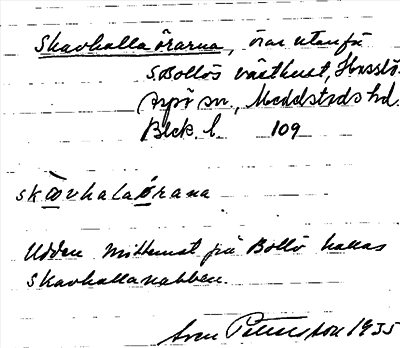 Skavhallaörarna, örar utanför
S. Bollös västkust, Hasslö.
Aspö sn., Medelsteds hd.
Blek. l. 109
skàvhalaórana
Udden mittemot på Bollö kallas
Skavhallanabben.
Sven Petersson 1935